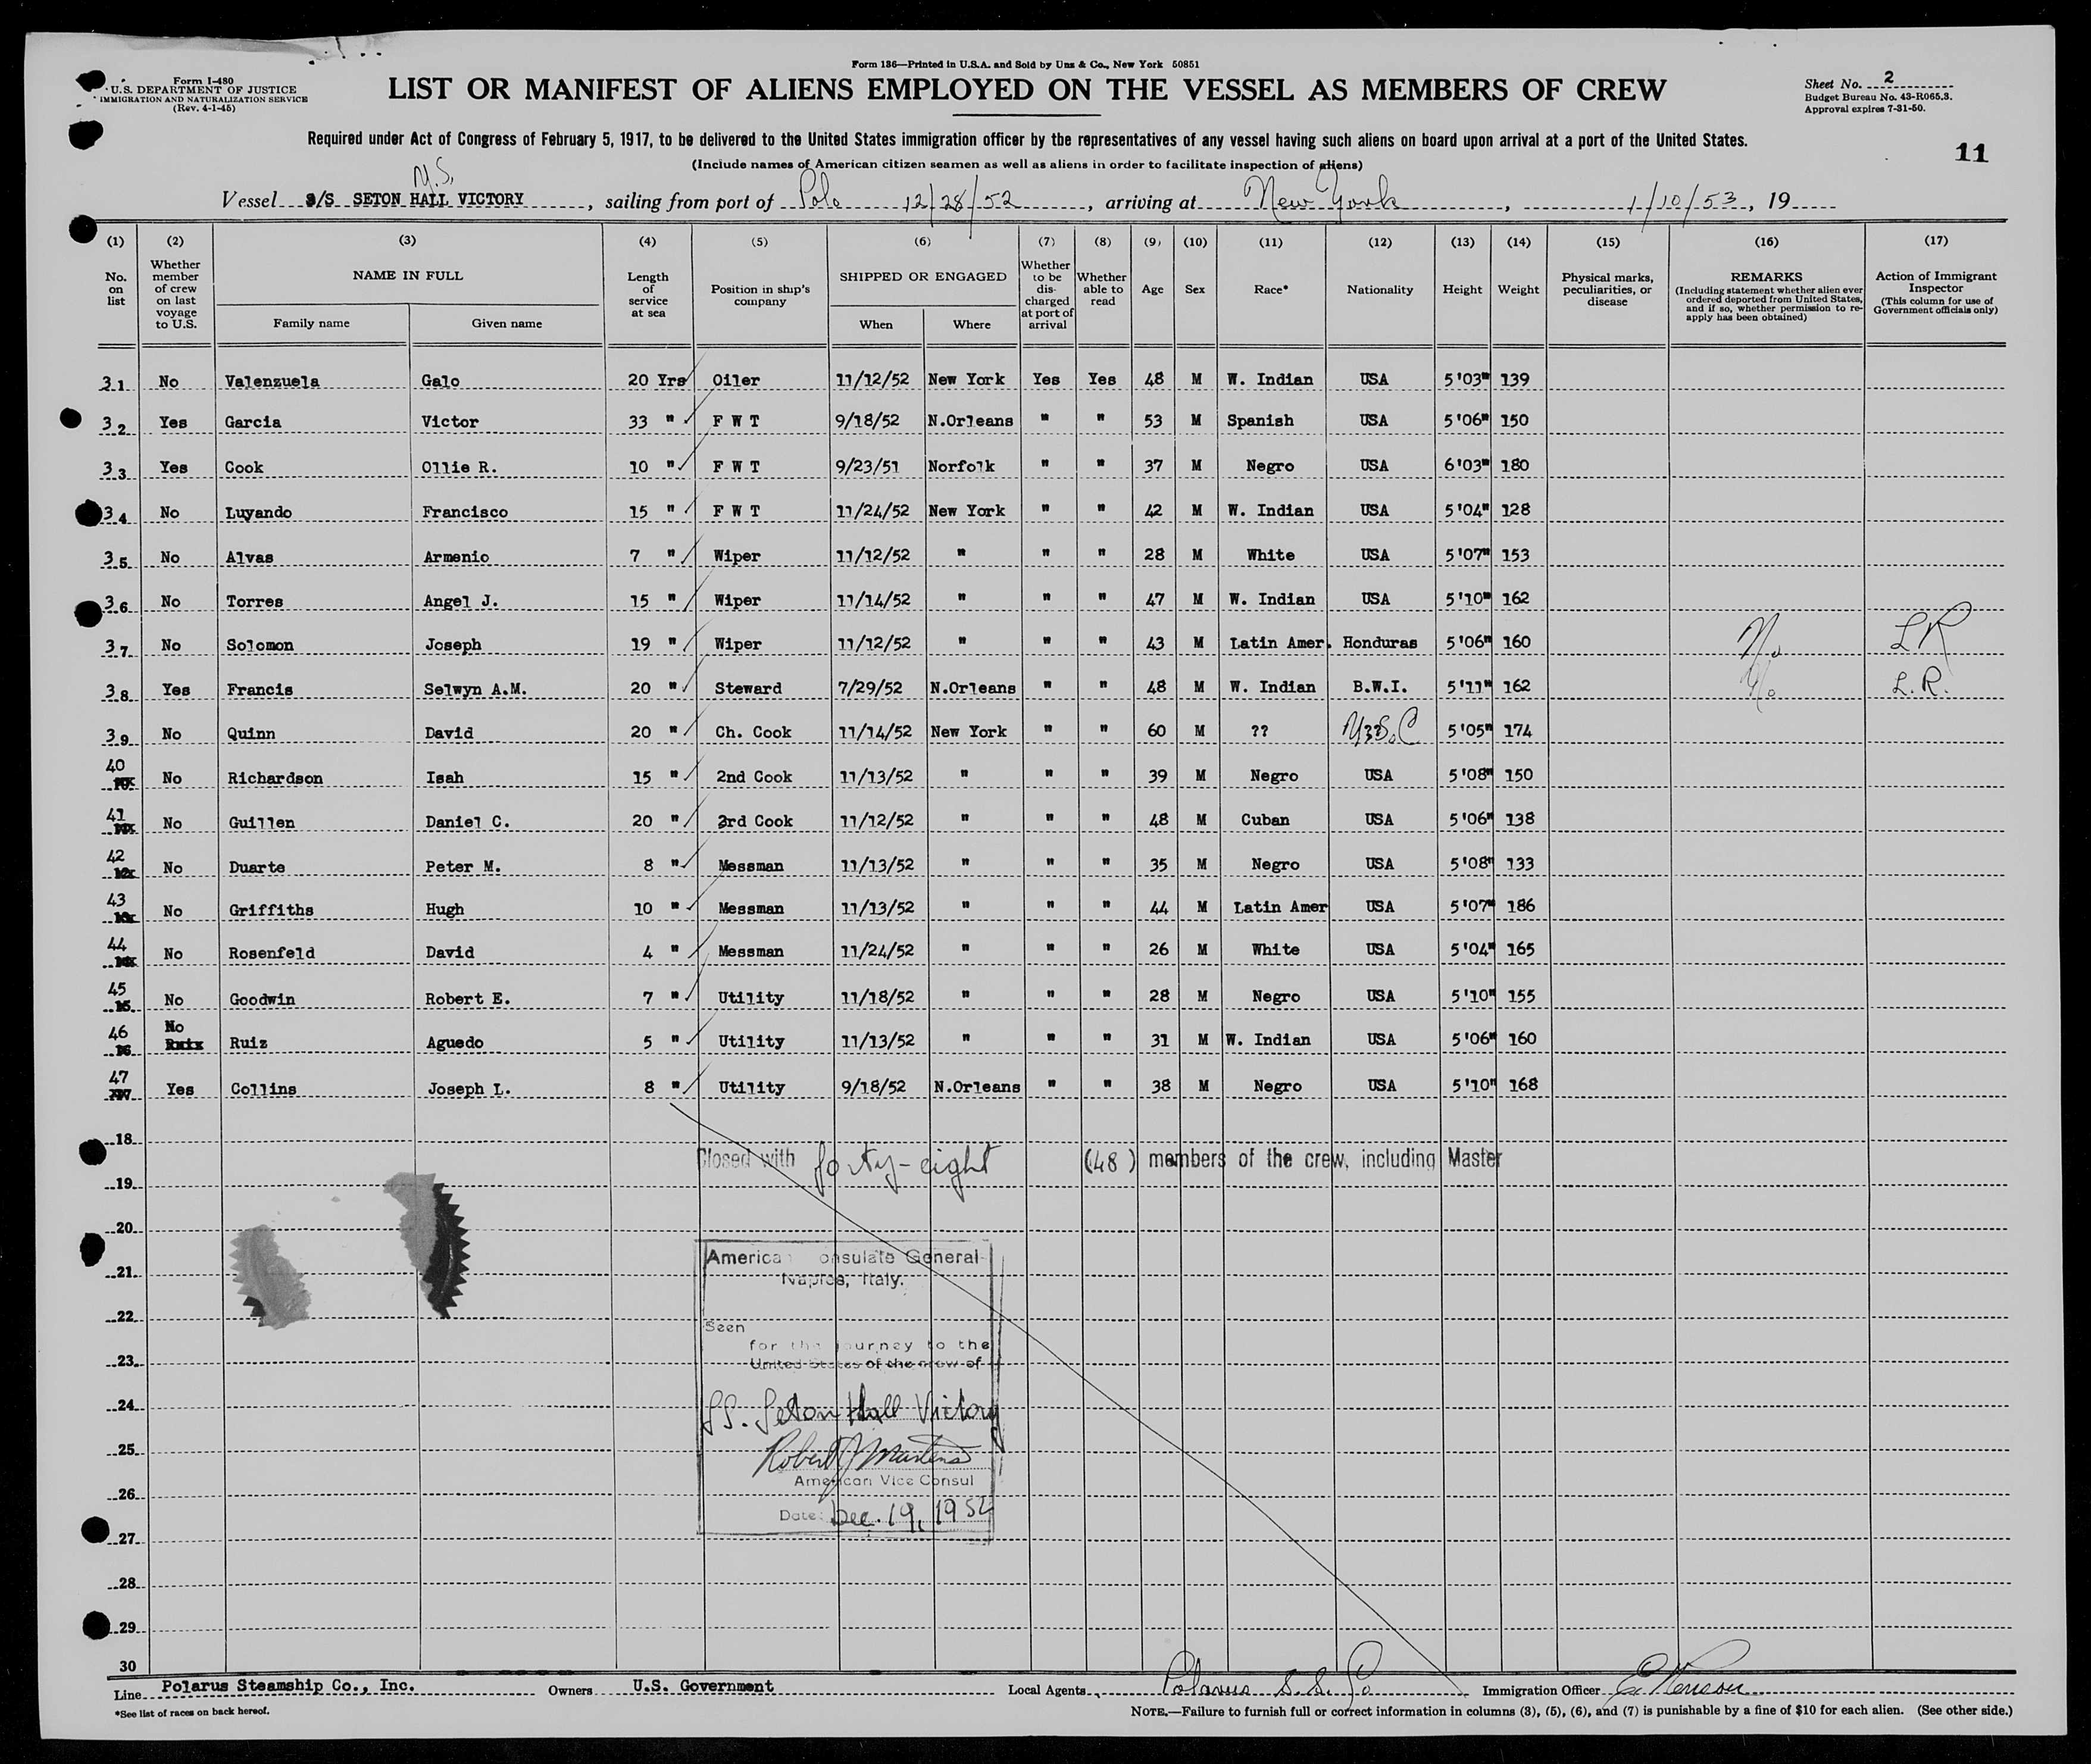 Form 136—Printed in U.S.A. and Sold by Unz & Co., New York 50851
Form I-480
U.S. DEPARTMENT OF JUSTICE
IMMIGRATION AND NATURALIZATION SERVICE
(Rev. 4-1-45)
LIST OR MANIFEST OF ALIENS EMPLOYED ON THE VESSEL AS MEMBERS OF CREW
Sheet No. 2
Budget Bureau No. 43-R065.3.
Approval expires 7-31-50.
Required under Act of Congress of February 5, 1917, to be delivered to the United States immigration officer by the representatives of any vessel having such aliens on board upon arrival at a port of the United States.
11
(Include names of American citizen seamen as well as aliens in order to facilitate inspection of aliens)
M.S.
Vessel S/S SETON HALL VICTORY, sailing from port of Polo 12/28/52, arriving at New York, 1/10/53, 19
(1) (2) (3) (4) (5) (6) (7) (8) (9) (10) (11) (12) (13) (14) (15) (16) (17)
No. on list
Whether member of crew on last voyage to U.S.
NAME IN FULL
Family name
Given name
Length of service at sea
Position in ship's company
SHIPPED OR ENGAGED
When
Where
Whether to be discharged at port of arrival
Whether able to read
Age
Sex
Race*
Nationality
Height
Weight
Physical marks, peculiarities, or disease
REMARKS
(Including statement whether alien ever ordered deported from United States, and if so, whether permission to re-apply has been obtained)
Action of Immigrant Inspector
(This column for use of Government officials only)
31 No Valenzuela Galo 20 Yrs Oiler 11/12/52 New York Yes Yes 48 M W. Indian USA 5'03" 139
32 Yes Garcia Victor 33 " F W T 9/18/52 N.Orleans " " 53 M Spanish USA 5'06" 150
33 Yes Cook Ollie R. 10 " F W T 9/23/51 Norfolk " " 37 M Negro USA 6'03" 180
34 No Luyando Francisco 15 " F W T 11/24/52 New York " " 42 M W. Indian USA 5'04" 128
35 No Alvas Armenio 7 " Wiper 11/12/52 " " " 28 M White USA 5'07" 153
36 No Torres Angel J. 15 " Wiper 11/14/52 " " " 47 M W. Indian USA 5'10" 162
37 No Solomon Joseph 19 " Wiper 11/12/52 " " " 43 M Latin Amer. Honduras 5'06" 160 No LR
38 Yes Francis Selwyn A.M. 20 " Steward 7/29/52 N.Orleans " " 48 M W. Indian B.W.I. 5'11" 162 No L.R.
39 No Quinn David 20 " Ch. Cook 11/14/52 New York " " 60 M ?? U.S.C 5'05" 174
40 No Richardson Isah 15 " 2nd Cook 11/13/52 " " " 39 M Negro USA 5'08" 150
41 No Guillen Daniel C. 20 " 3rd Cook 11/12/52 " " " 48 M Cuban USA 5'06" 138
42 No Duarte Peter M. 8 " Messman 11/13/52 " " " 35 M Negro USA 5'08" 133
43 No Griffiths Hugh 10 " Messman 11/13/52 " " " 44 M Latin Amer USA 5'07" 186
44 No Rosenfeld David 4 " Messman 11/24/52 " " " 26 M White USA 5'04" 165
45 No Goodwin Robert E. 7 " Utility 11/18/52 " " " 28 M Negro USA 5'10" 155
46 No Ruiz Aguedo 5 " Utility 11/13/52 " " " 31 M W. Indian USA 5'06" 160
47 Yes Collins Joseph L. 8 " Utility 9/18/52 N.Orleans " " 38 M Negro USA 5'10" 168
18
Closed with forty-eight (48) members of the crew, including Master
19
20
American Consulate General
21
Naples, Italy.
22
Seen
for the journey to the
23
United States of the crew of
24
SS. Seton Hall Victory
25
Robert J Martens
American Vice Consul
26
Date: Dec. 19, 1952
27
28
29
30
Line Polarus Steamship Co., Inc. Owners U.S. Government Local Agents Polarus S.S. Co Immigration Officer
*See list of races on back hereof.
NOTE.—Failure to furnish full or correct information in columns (3), (5), (6), and (7) is punishable by a fine of $10 for each alien. (See other side.)